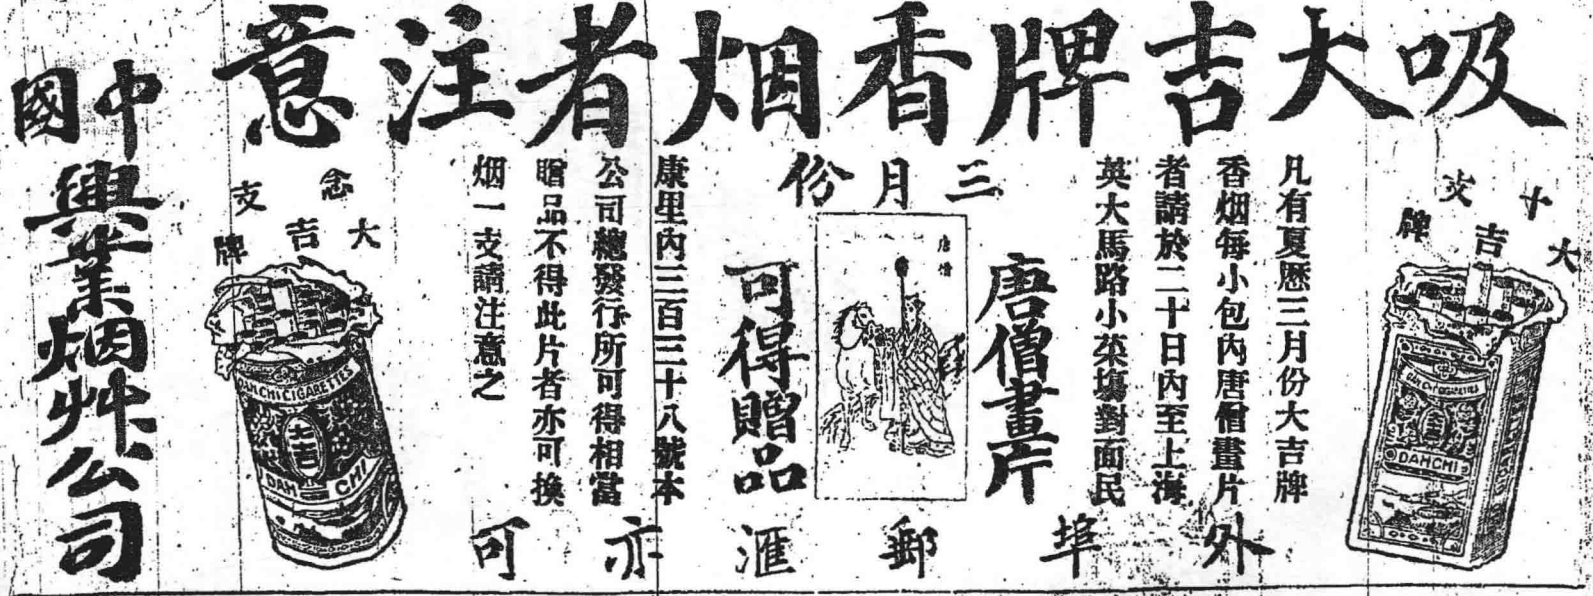 吸大吉牌香烟者注意
十支
大吉牌
DAH CHI CIGARETTES
DAHCHI
凡有夏歷三月份大吉牌
香烟每小包內唐僧畫片
者請於二十日內至上海
英大馬路小菜塲對面民
三月份
唐僧畫片
唐僧
可得贈品
康里內三百三十八號本
公司總發行所可得相當
贈品不得此片者亦可換
烟一支請注意之
外埠郵滙亦可
念支
大吉牌
DAH CHI CIGARETTES
大吉
DAH CHI
中國
興業烟艸公司